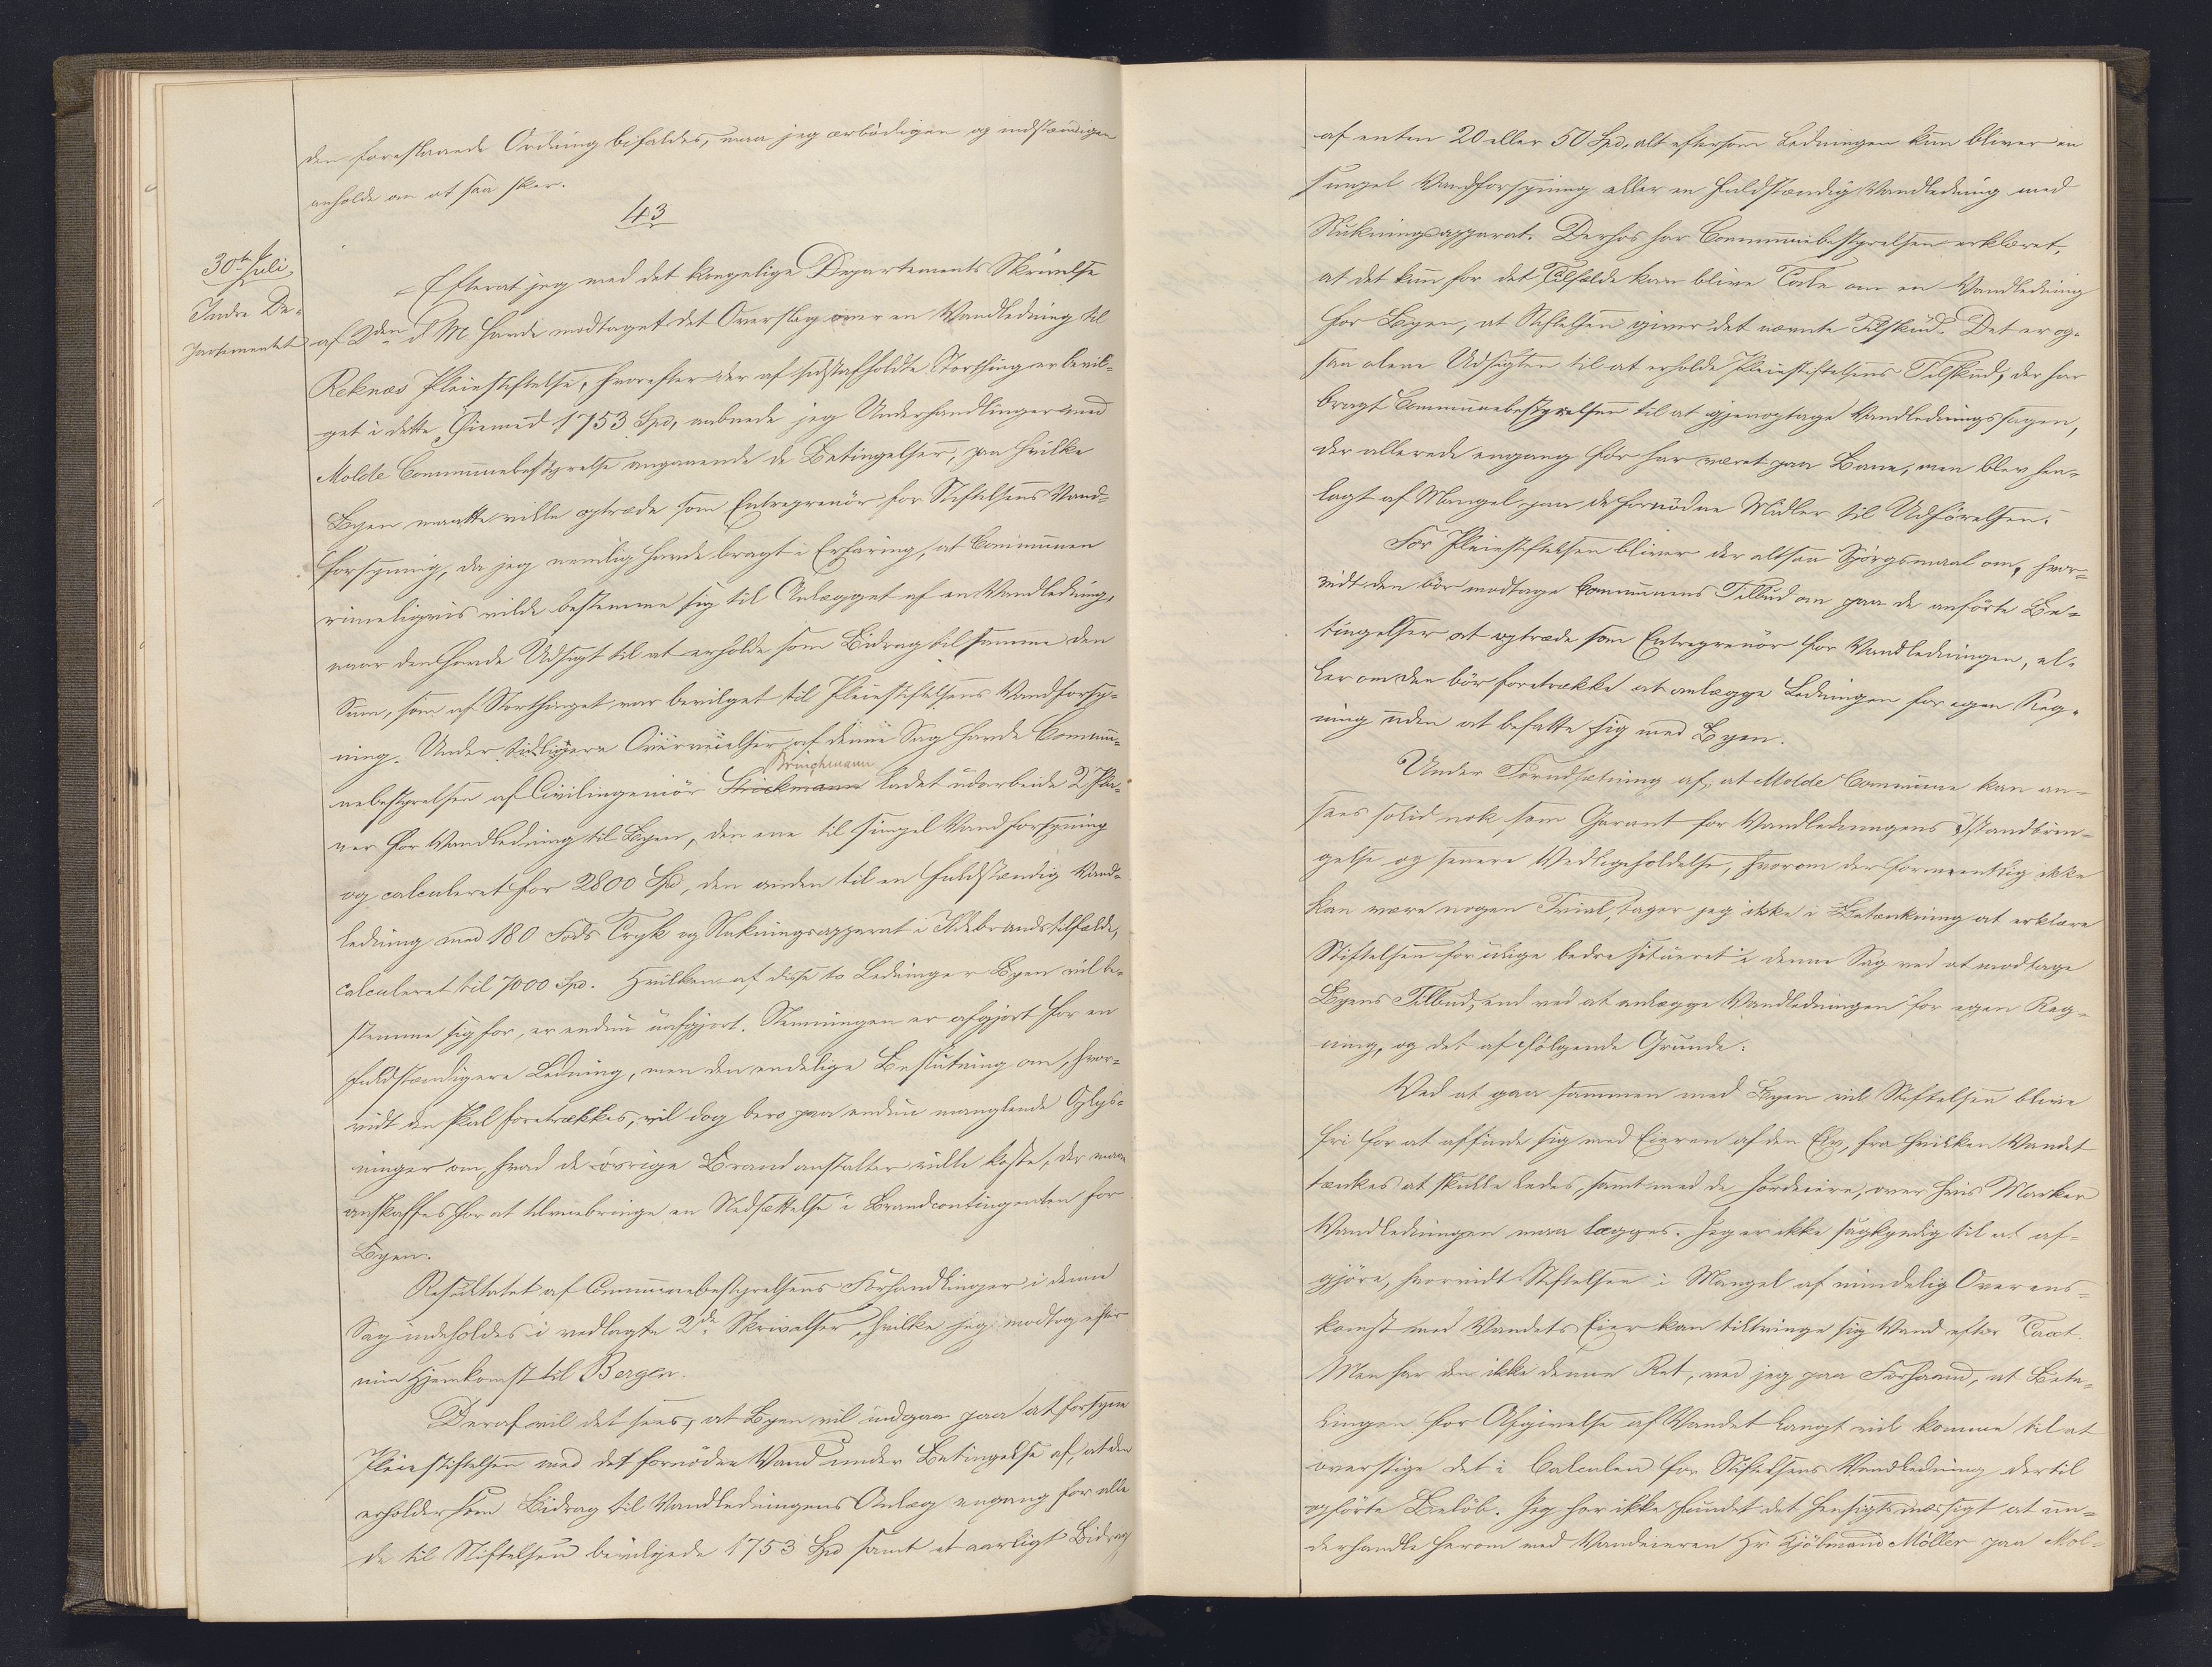 den foreslaaede Ordning bifaldes, maa jeg ærbödigen og indstændigen
anholde om at saa sker.
43
30te Juli.
Indre De-
partementet
Efterat jeg med det kongelige Departements Skrivelse
af 2den d. M. havde modtaget det Overslag over en Vandledning til
Reknæs Pleiestiftelse, hvorefter der af sidstafholdte Storthing er bevil-
get i dette Øiemed 1753 Spd, aabnede jeg Underhandlinger med
Molde Communebestyrelse angaaende de Betingelser, paa hvilke
Byen maatte ville optræde som Entreprenör for Stiftelsens Vand-
forsyning, da jeg nemlig havde bragt i Erfaring, at Communen
rimeligvis vilde bestemme sig til Anlægget af en Vandledning,
naar den havde Udsigt til at erholde som Bidrag til samme den
Sum, som af Storthinget var bevilget til Pleiestiftelsens Vandforsy-
ning. Under tidligere Overveielser af denne Sag havde Commu-
Bruchmann
nebestyrelsen af Civilingeniör Ströckmann ladet udarbeide 2 Pla-
ner for Vandledning til Byen, den ene til simpel Vandforsyning
og calculeret for 2800 Spd, den anden til en fuldstændig Vand-
ledning med 180 Fods Tryk og Slukningsapparat i Ildebrandstilfælde,
calculeret til 7000 Spd. Hvilken af disse to Ledninger Byen vil be-
stemme sig for, er endnu uafgjort. Stemningen er afgjort for en
fuldstændigere Ledning, men den endelige Beslutning om, hvor-
vidt den skal foretrækkes, vil dog bero paa endnu manglende Oplys-
ninger om, hvad de övrige Brandanstalter ville koste, der maa
anskaffes for at tilveiebringe en Nedsættelse i Brandcontingenten for
Byen.
Resultatet af Communebestyrelsens Forhandlinger i denne
Sag indeholdes i vedlagte 2de Skrivelser, hvilke jeg modtog efter
min Hjemkomst til Bergen.
Deraf vil det sees, at Byen vil indgaa paa at forsyne
Pleiestiftelsen med det fornödne Vand under Betingelse af, at den
erholder som Bidrag til Vandledningens Anlæg engang for alle
de til Stiftelsen bevilgede 1753 Spd samt et aarligt Bidrag
af enten 20 eller 50 Spd, alt eftersom Ledningen kun bliver en
simpel Vandforsyning eller en fuldstændig Vandledning med
Slukningsapparat. Derhos har Communebestyrelsen erklæret,
at det kun for det Tilfælde kan blive Tale om en Vandledning
for Byen, at Stiftelsen giver det nævnte Tilskud. Det er og-
saa alene Udsigten til at erholde Pleiestiftelsens Tilskud, der har
bragt Communebestyrelsen til at gjenoptage Vandledningssagen,
der allerede engang för har været paa Bane, men blev hen-
lagt af Mangel paa de fornödne Midler til Udförelsen.
For Pleiestiftelsen bliver der altsaa Spörgsmaal om, hvor-
vidt den bör modtage Communens Tilbud om paa de anförte Be-
tingelser at optræde som Entreprenör for Vandledningen, el-
ler om den bör foretrække at anlægge Ledningen for egen Reg-
ning uden at befatte sig med Byen.
Under Forudsætning af, at Molde Commune kan an-
sees solid nok som Garant for Vandledningens Istandbrin-
gelse og senere Vedligeholdelse, hvorom der formeentlig ikke
kan være nogen Tvivl, tager jeg ikke i Betænkning at erklære
Stiftelsen for ulige bedre situeret i denne Sag ved at modtage
Byens Tilbud, end ved at anlægge Vandledningen for egen Reg-
ning, og det af fölgende Grunde:
Ved at gaa sammen med Byen vil Stiftelsen blive
fri for at affinde sig med Eieren af den Elv, fra hvilken Vandet
tænkes at skulle ledes, samt med de Jordeiere, over hvis Marker
Vandledningen maa lægges. Jeg er ikke sagkyndig til at af-
gjöre, hvorvidt Stiftelsen i Mangel af mindelig Overens-
komst med Vandets Eier kan tiltvinge sig Vand efter Taxt.
Men har den ikke denne Ret, ved jeg paa Forhaand, at Beta-
lingen for Afgivelse af Vandet langt vil komme til at
overstige det i Calculen for Stiftelsens Vandledning dertil
opförte Belöb. Jeg har ikke fundet det hensigtsmæssigt at un-
derhandle herom med Vandeieren Hr Kjöbmand Möller paa Mol-